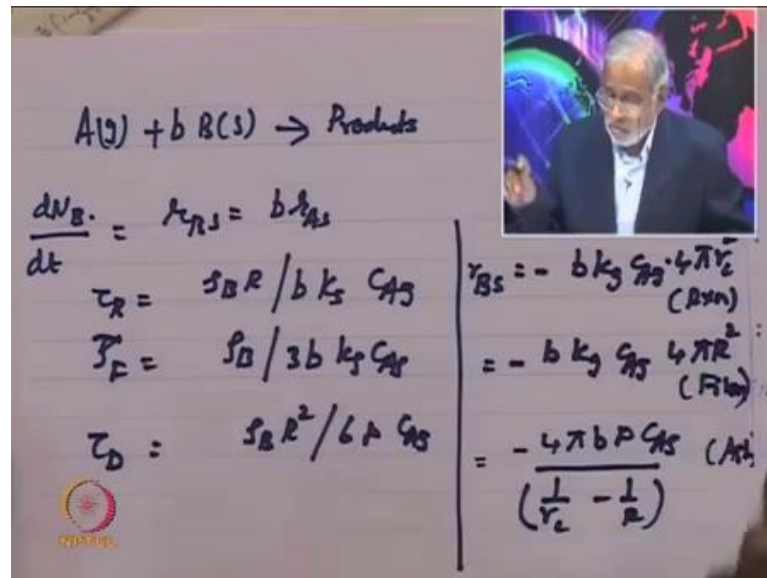 A(g) + b B(s) → Products
dN_B./dt = r_BS = b r_AS
τ_R = ρ_B R / b k_s C_Ag
τ_F = ρ_B / 3b k_g C_Ag
τ_D = ρ_B R² / 6 D C_Ag
r_BS = - b k_g C_Ag · 4πr_c²
(Rxn)
= - b k_g C_Ag 4πR²
(Film)
= - 4π b D C_Ag / (1/r_c - 1/R) (Ash)
NPTEL